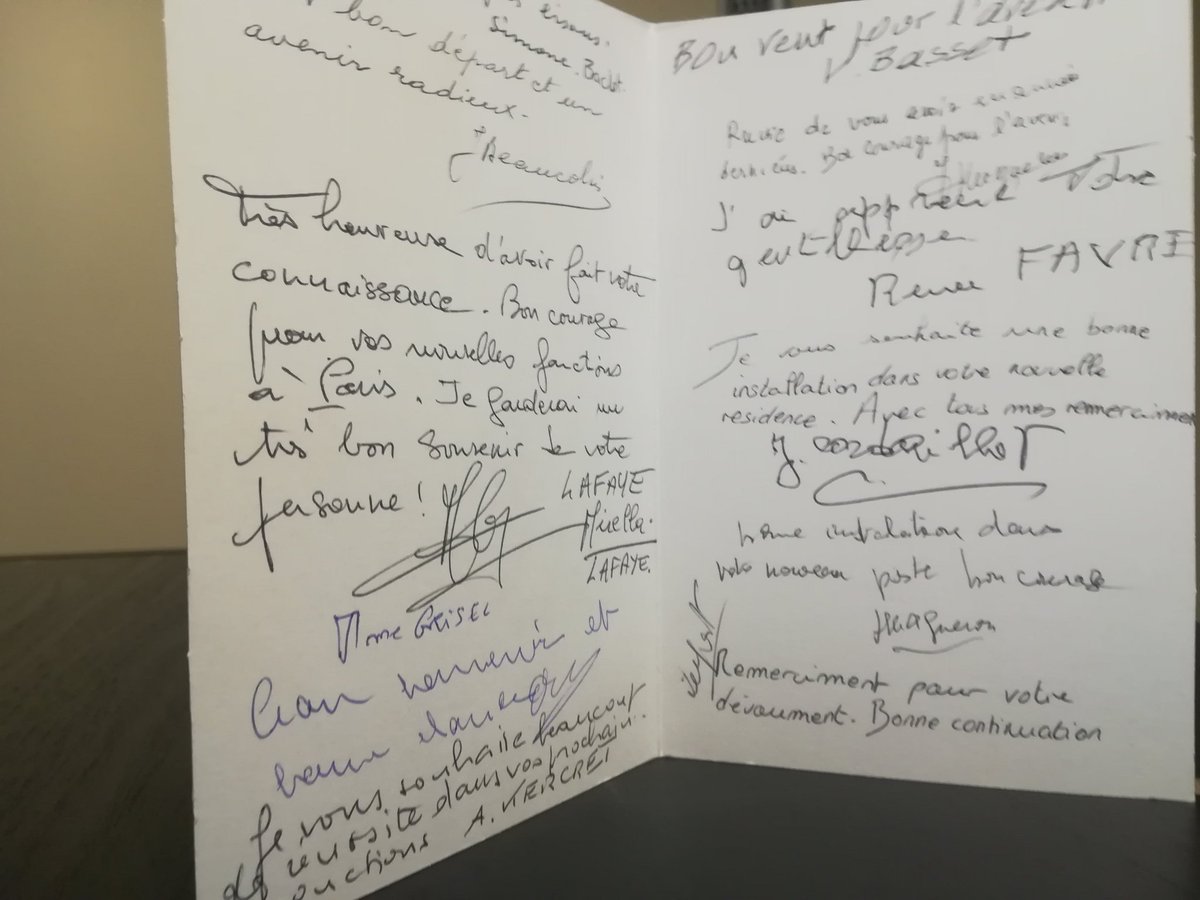 Simone
bon départ et un
avenir radieux.
Très heureuse d'avoir fait votre
connaissance. Bon courage
pour vos nouvelles fonctions
à Paris. Je garderai un
très bon souvenir de votre
personne !
LAFAYE
Mirella.
LAFAYE.
Mme GRISEL
et
Je vous souhaite beaucoup
de réussite dans vos prochain
fonctions A. KERCRET
Bon vent pour l'avenir
V. Basset
de vous avoir
Bon courage pour l'avenir
J'ai apprécié Votre
gentillesse
Renee FAVRE
Je vous souhaite une bonne
installation dans votre nouvelle
residence. Avec tous mes remerciments
bonne instalation dans
votre nouveau poste bon courage
Remerciment pour votre
dévoument. Bonne continuation